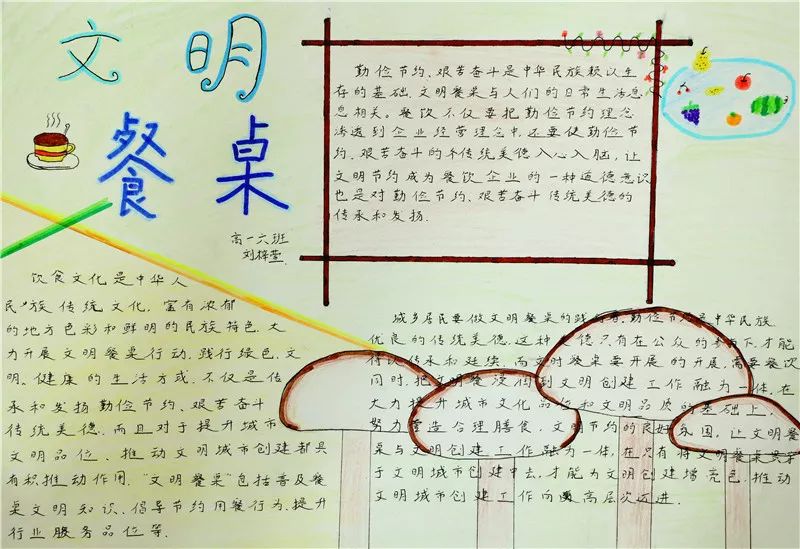 文明
餐桌
高一六班
刘梓萱
勤俭节约、艰苦奋斗是中华民族赖以生
存的基础.文明餐桌与人们的日常生活息
息相关。餐饮不仅要把勤俭节约理念
渗透到企业经营理念中.还要使勤俭节
约、艰苦奋斗的传统美德入心入脑，让
文明节约成为餐饮企业的一种道德意识
也是对勤俭节约、艰苦奋斗传统美德的
传承和发扬.
饮食文化是中华人
民族传统文化，富有浓郁
的地方色彩和鲜明的民族特色.大
力开展文明餐桌行动.践行绿色.文
明.健康的生活方式.不仅是传
承和发扬勤俭节约、艰苦奋斗
传统美德.而且对于提升城市
文明品位、推动文明城市创建都具
有积推动作用.“文明餐桌”包括普及餐
桌文明知识、倡导节约用餐行为.提升
行业服务品位等.
城乡居民要做文明餐桌的践行者.勤俭节约是中华民族
优良的传统美德.这种美德只有在公众的参与下.才能
得以传承和延续.而文明餐桌要开展的开展.需要餐饮
同时.把文明餐桌活动到文明创建工作融为一体.在
大力提升城市文化品位和文明品质的基础上，
努力营造合理膳食.文明节约的良好氛围，让文明餐
桌与文明创建工作融为一体.在只有将文明餐桌贯穿
于文明城市创建中去.才能为文明创建增亮色.推动
文明城市创建工作向更高层次迈进.